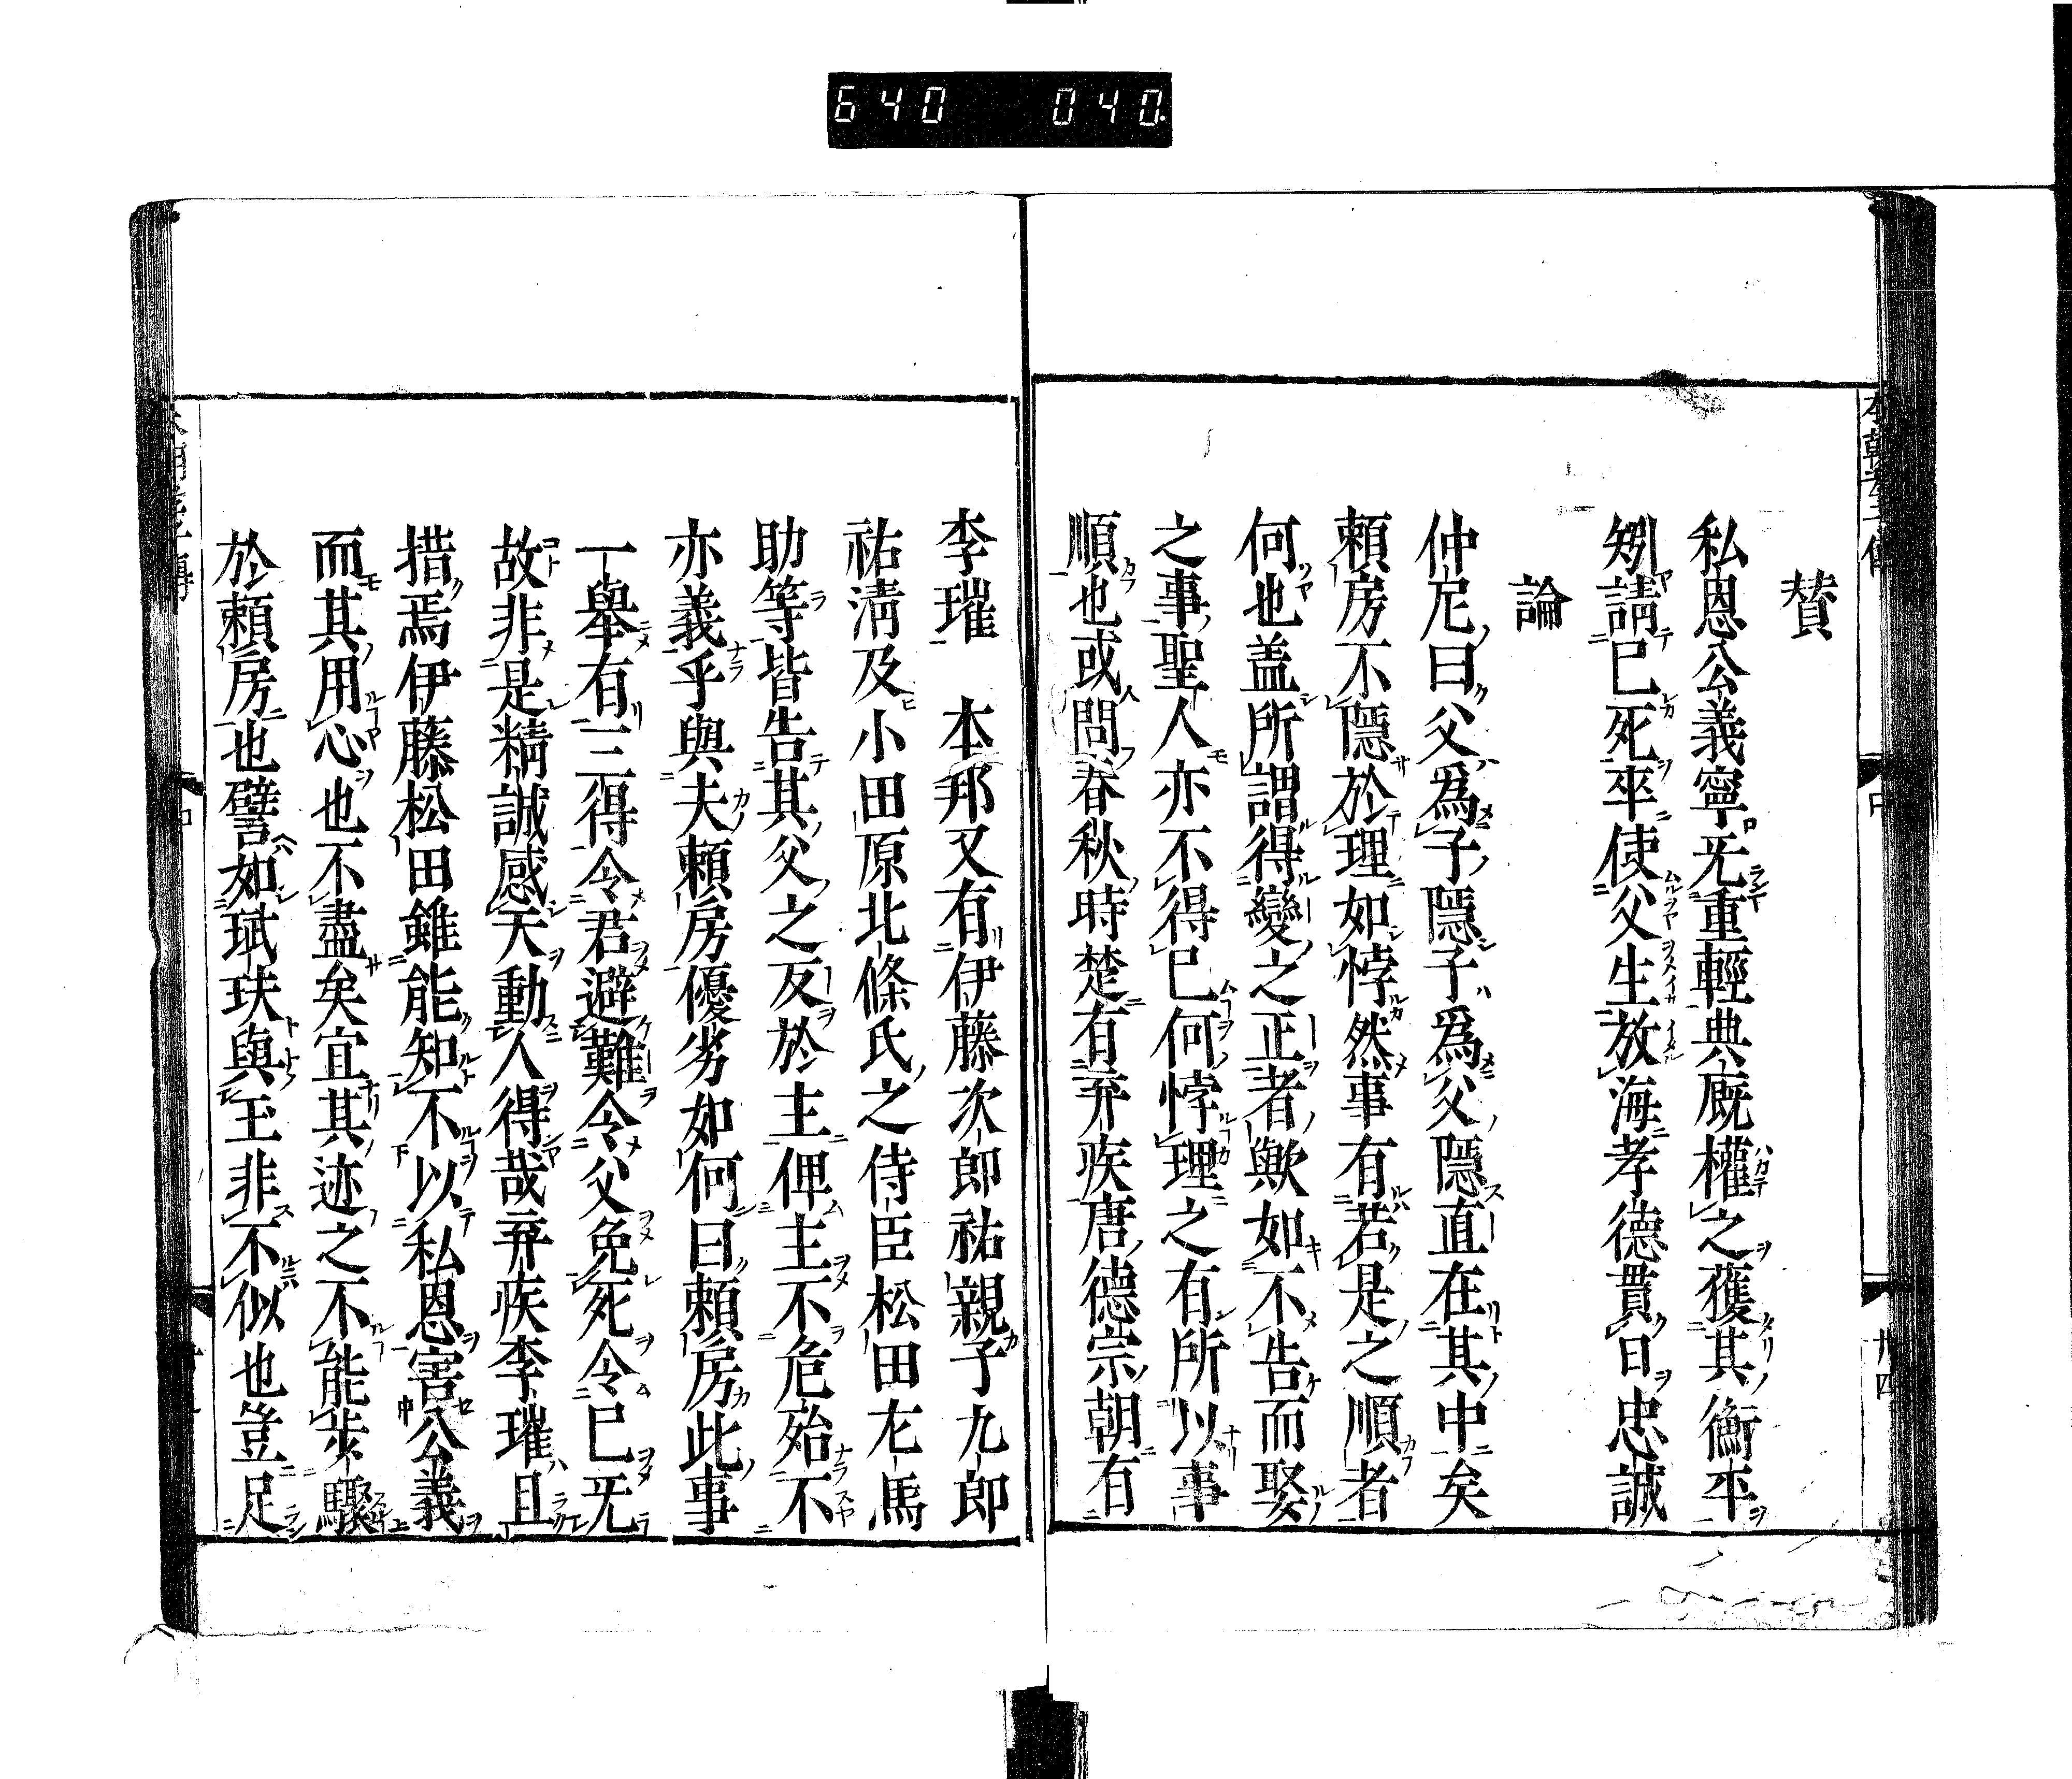 640 040
賛
私恩公義寧旡重輕典廐權之獲其衡平
矧請已死卒使父生放海孝德貫日忠誠
論
仲尼曰父爲子隱子爲父隱直在其中矣
賴房不隱於理如悖然事有若是之順者
何也盖所謂得變之正者歟如不告而娶
之事聖人亦不得已何悖理之有所以事
順也或問春秋時楚有弃疾唐德宗朝有
李璀 本邦又有伊藤次郎祐親子九郎
祐淸及小田原北條氏之侍臣松田左馬
助等皆告其父之反於主俾主不危殆不
亦義乎與夫賴房優劣如何曰賴房此事
一舉有三得令君避難令父免死令已旡
故非是精誠感天動人得哉弃疾李璀且
措焉伊藤松田雖能知不以私恩害公義
而其用心也不盡矣宜其迹之不能步驟
於賴房也譬如珷玞與玉非不似也豈足